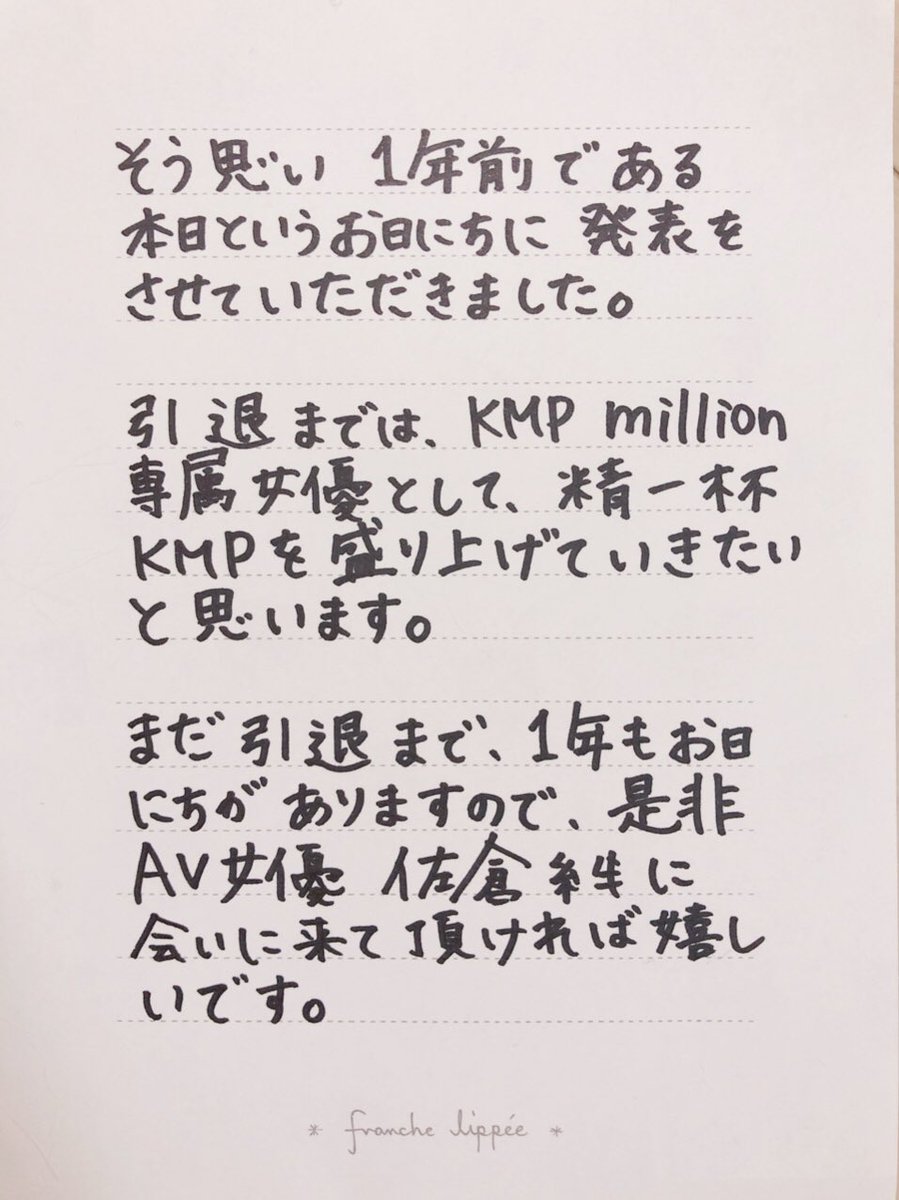 そう思い 1年前である
本日というお日にちに 発表を
させていただきました。
引退までは、KMP million
専属女優として、精一杯
KMPを盛り上げていきたい
と思います。
まだ引退まで、1年もお日
にちがありますので、是非
AV女優 佐倉絆に
会いに来て頂ければ嬉し
いです。
* franche lippée *